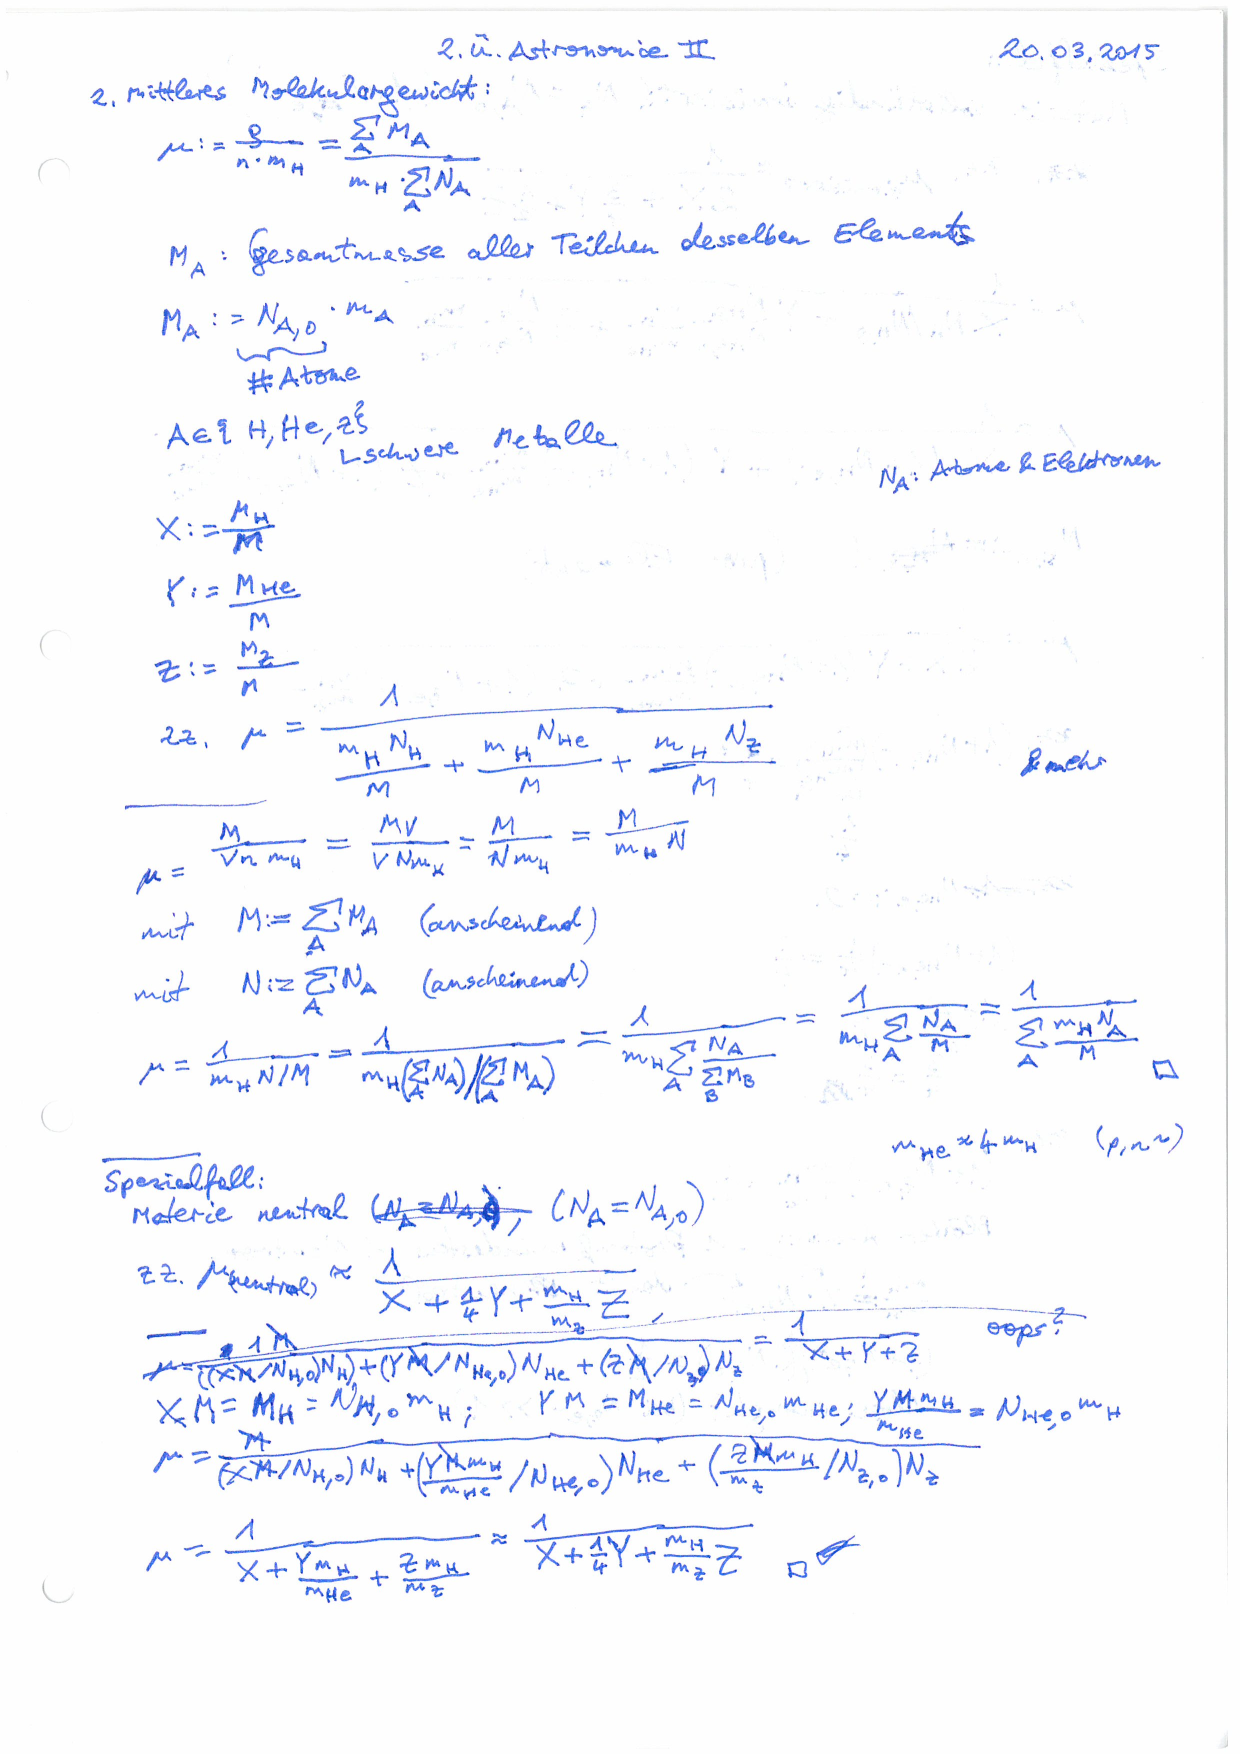 2. Ü. Astronomie II 20.03.2015
2. mittleres Molekulargewicht:
μ := ρ/(n·m_H) = (Σ_A M_A)/(m_H · Σ_A N_A)
M_A : Gesamtmasse aller Teilchen desselben Elements
M_A := N_{A,0} · m_A
# Atome
A ∈ { H, He, Z }
schwere Metalle
N_A: Atome & Elektronen
X := M_H/M
Y := M_He/M
Z := M_Z/M
zz. μ = 1/((m_H N_H)/M + (m_H N_He)/M + (m_H N_Z)/M) & mehr
μ = M/(V n m_H) = (M V)/(V N m_H) = M/(N m_H) = M/(m_H N)
mit M := Σ_A M_A (anscheinend)
mit N := Σ_A N_A (anscheinend)
μ = 1/(m_H N/M) = 1/(m_H (Σ_A N_A)/(Σ_A M_A)) = 1/(m_H Σ_A N_A/(Σ_B M_B)) = 1/(m_H Σ_A N_A/M) = 1/(Σ_A (m_H N_A)/M) □
m_He ≈ 4 m_H (p, n ~)
Spezialfall:
Materie neutral (N_A = N_{A,0}), (N_A = N_{A,0})
zz. μ(neutral) ≈ 1/(X + 1/4 Y + (m_H/m_Z) Z)
μ = 1 M/(((X M/N_{H,0}) N_H) + (Y M/N_{He,0}) N_He + (Z M/N_{Z,0}) N_Z) = 1/(X + Y + Z) oops?
X M = M_H = N_{H,0} m_H ; Y M = M_He = N_{He,0} m_He ; (Y M m_H)/m_He = N_{He,0} m_H
μ = M/((X M/N_{H,0}) N_H + ((Y M m_H)/m_He /N_{He,0}) N_He + ((Z M m_H)/m_Z /N_{Z,0}) N_Z)
μ = 1/(X + (Y m_H)/m_He + (Z m_H)/m_Z) ≈ 1/(X + 1/4 Y + (m_H/m_Z) Z) □